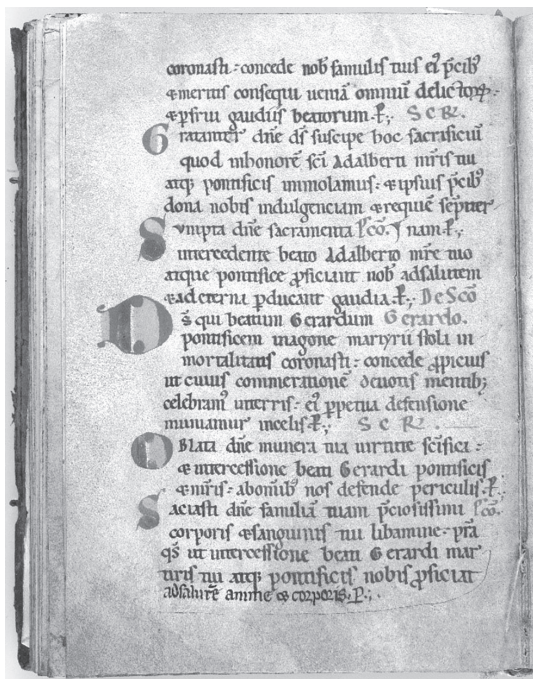 coronasti : concede nob famulis tuis ei p̄cib;
& meritis consequi ueniā omniū delictorꝝ.
& ꝑfrui gaudiis beatorum. ꝑ; SCR.
Gratanter dn̄e ds̄ suscipe hoc sacrificiū
quod inhonorē sc̄i Adalberti mr̄is tui
atq; pontificis immolamus : & ipsius p̄cib;
dona nobis indulgenciam & requiē sempiter
Sumpta dn̄e sacramenta P̄cō. nam. ꝑ;
intercedente beato Adalberto mr̄e tuo
atque pontifice ꝓficiant nob adsalutem
& ad eterna ꝑducant gaudia. ꝑ; De Scō
Ds̄ qui beatum Gerardum Gerardo.
pontificem inagone martyrii stola in
mortalitatis coronasti : concede ꝓpicius
ut cuius commemorationē deuotis mentib;
celebram' interris : ei ꝑpetua defensione
muniamur incelis. ꝑ; SCR.
Oblata dn̄e munera tua uirtute sc̄ifica :
& intercessione beati Gerardi pontificis
& mr̄is : abomib; nos defende periculis. ꝑ;
Saciasti dn̄e familiā tuam p̄ciosissimi P̄cō.
corporis & sanguinis tui libamine : pr̄a
qs̄ ut intercessione beati Gerardi mar
tiris tui atq; pontificis nobis ꝓficiat
adsalutē anime & corporis. P.;